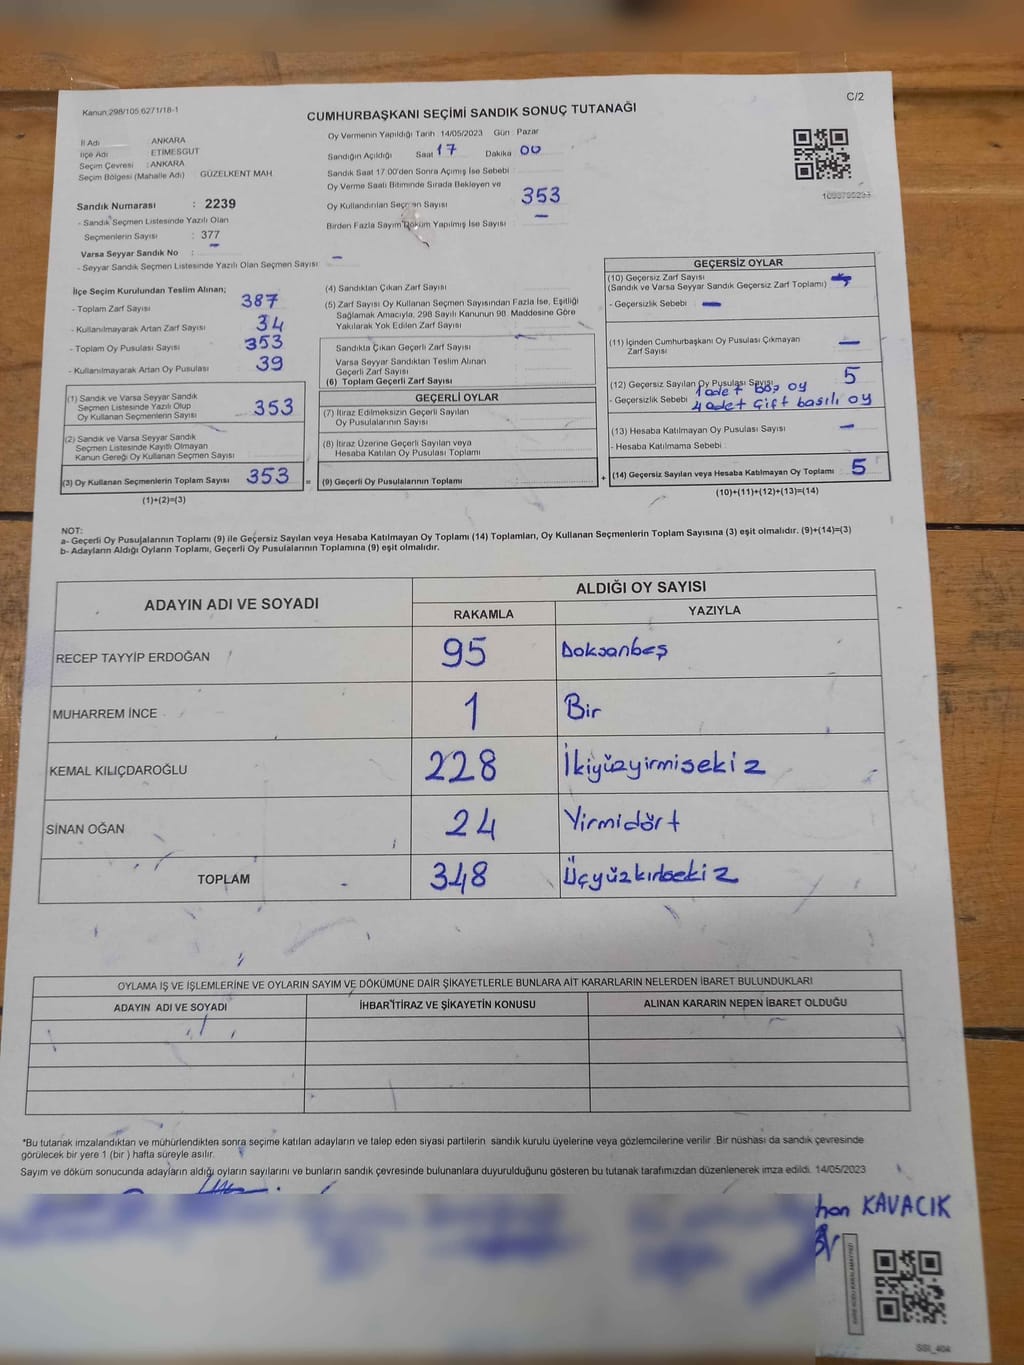 Kanun:298/105,6271/18-1
C/2
CUMHURBAŞKANI SEÇİMİ SANDIK SONUÇ TUTANAĞI
İl Adı : ANKARA
İlçe Adı : ETİMESGUT
Seçim Çevresi : ANKARA
Seçim Bölgesi (Mahalle Adı) GÜZELKENT MAH.
Sandık Numarası : 2239
- Sandık Seçmen Listesinde Yazılı Olan
Seçmenlerin Sayısı : 377
Varsa Seyyar Sandık No : -
- Seyyar Sandık Seçmen Listesinde Yazılı Olan Seçmen Sayısı : -
Oy Vermenin Yapıldığı Tarih 14/05/2023 Gün : Pazar
Sandığın Açıldığı Saat 17 Dakika 00
Sandık Saat 17.00'den Sonra Açılmış İse Sebebi
Oy Verme Saati Bitiminde Sırada Bekleyen ve
Oy Kullandırılan Seçmen Sayısı 353
Birden Fazla Sayım Döküm Yapılmış İse Sayısı : -
İlçe Seçim Kurulundan Teslim Alınan;
- Toplam Zarf Sayısı : 387
- Kullanılmayarak Artan Zarf Sayısı : 34
- Toplam Oy Pusulası Sayısı : 353
- Kullanılmayarak Artan Oy Pusulası : 39
(1) Sandık ve Varsa Seyyar Sandık
Seçmen Listesinde Yazılı Olup
Oy Kullanan Seçmenlerin Sayısı 353
(2) Sandık ve Varsa Seyyar Sandık
Seçmen Listesinde Kayıtlı Olmayan
Kanun Gereği Oy Kullanan Seçmen Sayısı
(3) Oy Kullanan Seçmenlerin Toplam Sayısı 353 =
(1)+(2)=(3)
(4) Sandıktan Çıkan Zarf Sayısı
(5) Zarf Sayısı Oy Kullanan Seçmen Sayısından Fazla İse, Eşitliği
Sağlamak Amacıyla, 298 Sayılı Kanunun 98. Maddesine Göre
Yakılarak Yok Edilen Zarf Sayısı
Sandıkta Çıkan Geçerli Zarf Sayısı
Varsa Seyyar Sandıktan Teslim Alınan
Geçerli Zarf Sayısı
(6) Toplam Geçerli Zarf Sayısı
GEÇERLİ OYLAR
(7) İtiraz Edilmeksizin Geçerli Sayılan
Oy Pusulalarının Sayısı
(8) İtiraz Üzerine Geçerli Sayılan veya
Hesaba Katılan Oy Pusulası Toplamı
(9) Geçerli Oy Pusulalarının Toplamı +
GEÇERSİZ OYLAR
(10) Geçersiz Zarf Sayısı
(Sandık ve Varsa Seyyar Sandık Geçersiz Zarf Toplamı)
- Geçersizlik Sebebi : -
(11) İçinden Cumhurbaşkanı Oy Pusulası Çıkmayan
Zarf Sayısı -
(12) Geçersiz Sayılan Oy Pusulası Sayısı 5
1 adet Boş oy
- Geçersizlik Sebebi 4 adet Çift basılı oy
(13) Hesaba Katılmayan Oy Pusulası Sayısı -
- Hesaba Katılmama Sebebi
(14) Geçersiz Sayılan veya Hesaba Katılmayan Oy Toplamı 5
(10)+(11)+(12)+(13)=(14)
NOT:
a- Geçerli Oy Pusulalarının Toplamı (9) ile Geçersiz Sayılan veya Hesaba Katılmayan Oy Toplamı (14) Toplamları, Oy Kullanan Seçmenlerin Toplam Sayısına (3) eşit olmalıdır. (9)+(14)=(3)
b- Adayların Aldığı Oyların Toplamı, Geçerli Oy Pusulalarının Toplamına (9) eşit olmalıdır.
ADAYIN ADI VE SOYADI
ALDIĞI OY SAYISI
RAKAMLA YAZIYLA
RECEP TAYYİP ERDOĞAN 95 Doksanbeş
MUHARREM İNCE 1 Bir
KEMAL KILIÇDAROĞLU 228 İkiyüzyirmisekiz
SİNAN OĞAN 24 Yirmidört
TOPLAM 348 Üçyüzkırksekiz
OYLAMA İŞ VE İŞLEMLERİNE VE OYLARIN SAYIM VE DÖKÜMÜNE DAİR ŞİKAYETLERLE BUNLARA AİT KARARLARIN NELERDEN İBARET BULUNDUKLARI
ADAYIN ADI VE SOYADI İHBAR'İTİRAZ VE ŞİKAYETİN KONUSU ALINAN KARARIN NEDEN İBARET OLDUĞU
*Bu tutanak imzalandıktan ve mühürlendikten sonra seçime katılan adayların ve talep eden siyasi partilerin sandık kurulu üyelerine veya gözlemcilerine verilir. Bir nüshası da sandık çevresinde
görülecek bir yere 1 (bir) hafta süreyle asılır.
Sayım ve döküm sonucunda adayların aldığı oyların sayılarını ve bunların sandık çevresinde bulunanlara duyurulduğunu gösteren bu tutanak tarafımızdan düzenlenerek imza edildi. 14/05/2023
han KAVACIK
SSI_404